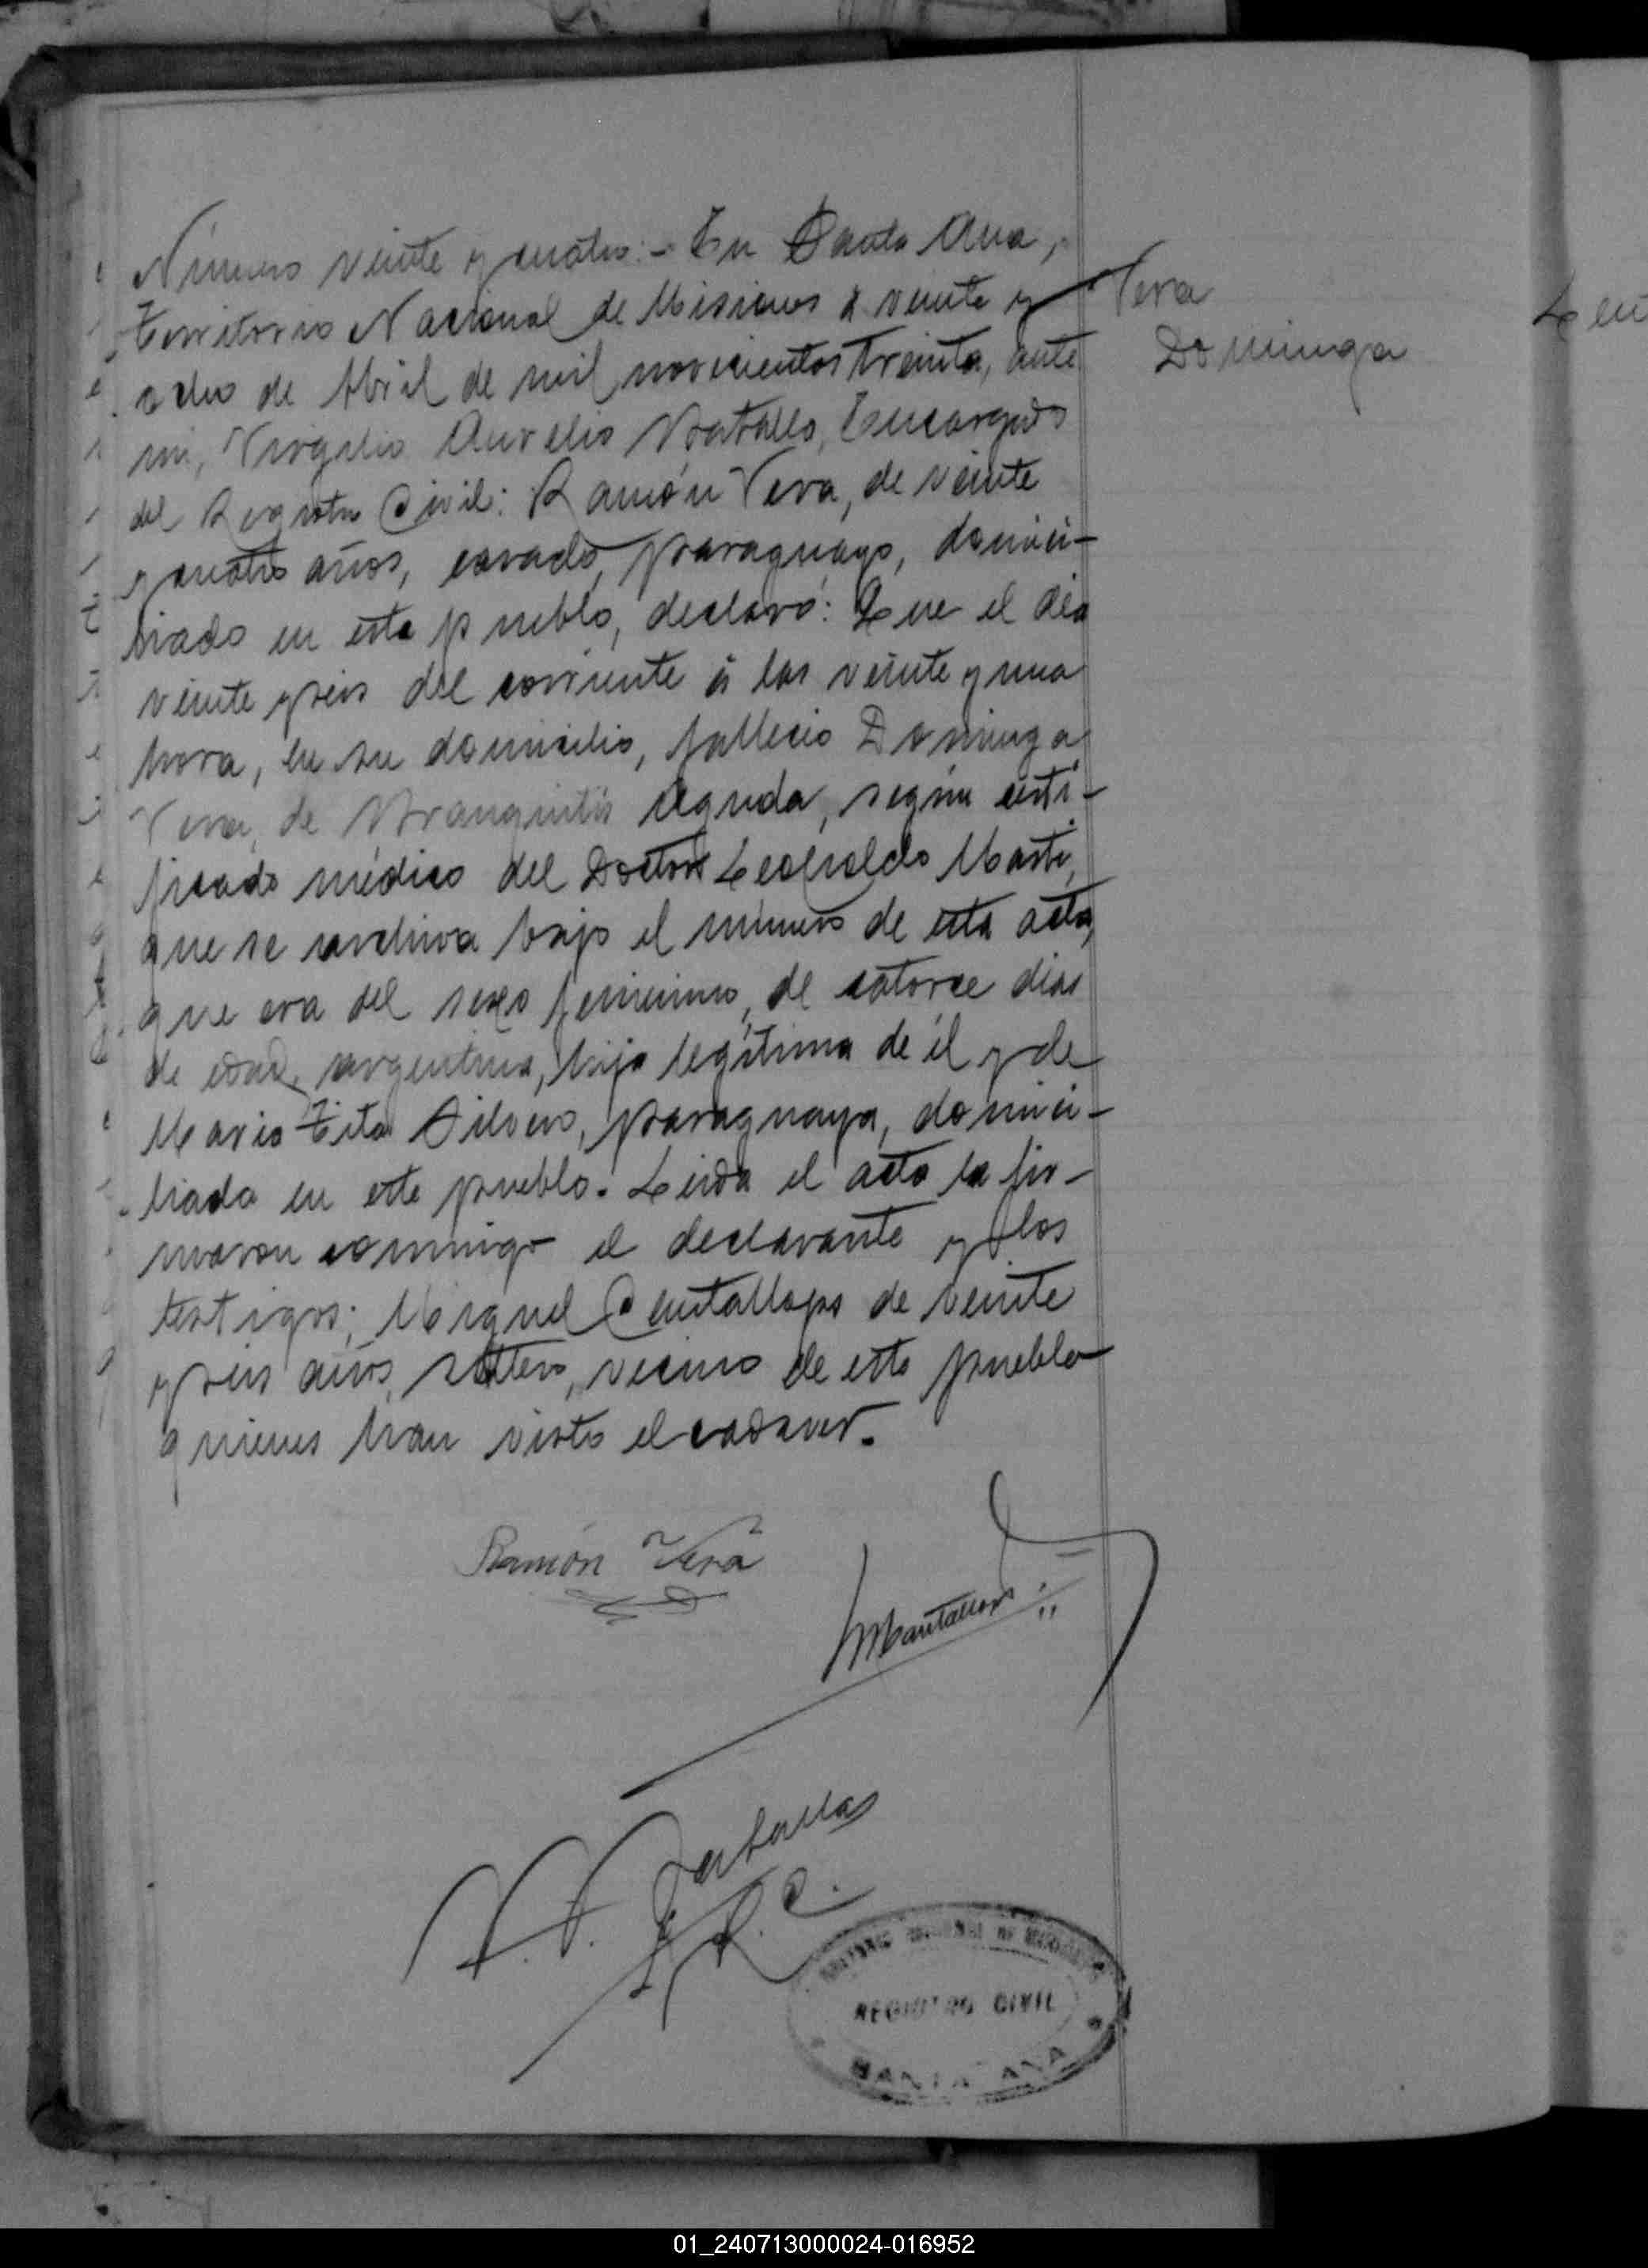 Número veinte y cuatro:- En Santa Ana,
Territorio Nacional de Misiones á veinte y
ocho de Abril de mil novecientos treinta, ante
mi, Virgilio Aurelio Encargado
del Registro Civil: Ramón Vera, de veinte
y cuatro años, casado, paraguayo, domici-
liado en este pueblo, declaró: Que el dia
veinte y seis del corriente á las veinte y una
hora, en su domicilio, fallecio Dominga
Vera, de Bronquitis aguda, según certi-
ficado médico del Doctor Leopoldo
que se archiva bajo el número de esta acta,
que era del sexo femenino, de catorce dias
de edad, argentina, hija legítima de él y de
Maria Tita Silvero, paraguaya, domici-
liada en este pueblo. Leida el acta la fir-
maron conmigo el declarante y los
testigos; Miguel de veinte
y seis años, soltero, vecino de este pueblo
quienes han visto el cadaver.
Vera
Dominga
Ramón Vera
REGISTRO CIVIL
SANTA ANA
01_240713000024-016952